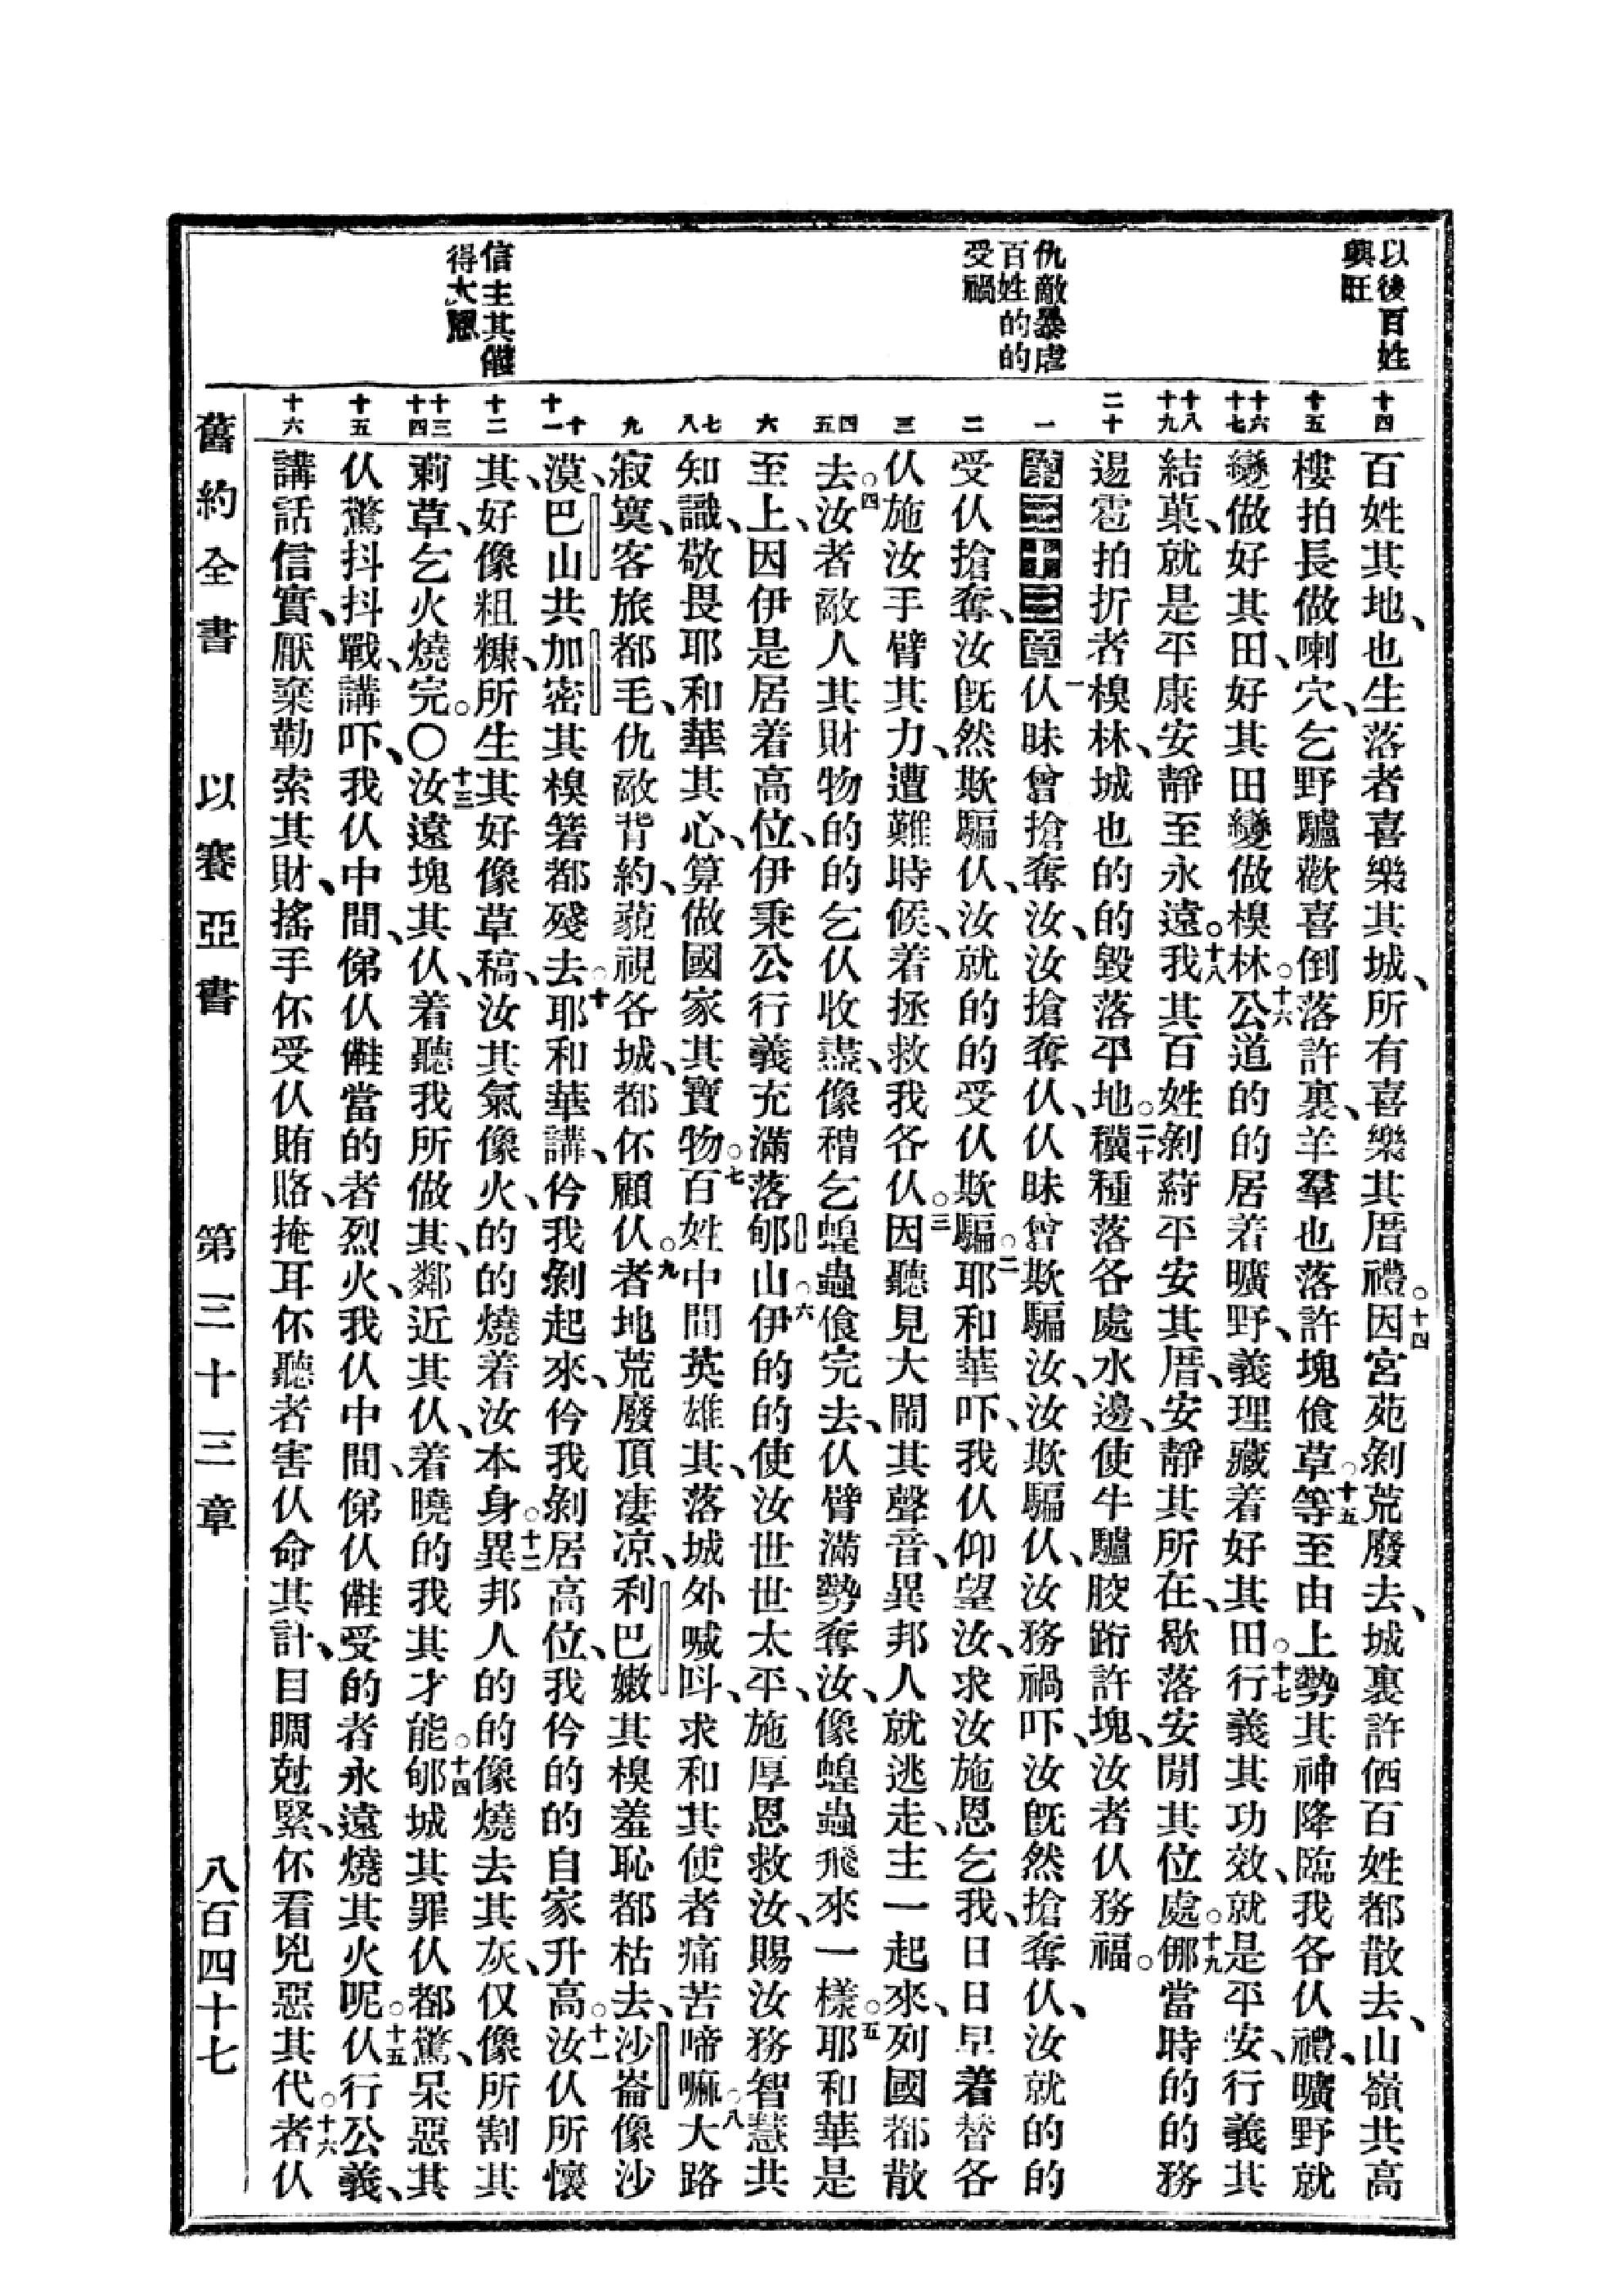 以後百姓
興旺
仇敵暴虐
百姓的的
受禍
信主其儺
得大恩
十四
十五
十六 十七
十八 十九
二十
一
二
三
四 五
六
七 八
九
十 十一
十二
十三 十四
十五
十六
百姓其地、也生落者喜樂其城、所有喜樂其厝禮。十四因宮苑剝荒廢去、城裏許㑚百姓都散去、山嶺共高
樓拍長做喇穴、乞野驢歡喜倒落許裏、羊羣也落許塊飡草。十五等至由上勢其神降臨我各仈禮、曠野就
變做好其田、好其田變做模林。十六公道的的居着曠野、義理藏着好其田。十七行義其功效、就是平安、行義其
結菓、就是平康安靜至永遠。十八我其百姓剝蒔平安其厝、安靜其所在、歇落安閒其位處。十九㑚當時的的務
逿雹拍折者模林、城也的的毀落平地。二十穬種落各處水邊、使牛驢骹跡許塊、汝者仈務福。
第三十三章 一仈昧曾搶奪汝、汝搶奪仈、仈昧曾欺騙汝、汝欺騙仈、汝務禍吓、汝旣然搶奪仈、汝就的的
受仈搶奪、汝旣然欺騙仈、汝就的的受仈欺騙。二耶和華吓、我仈仰望汝、求汝施恩乞我、日日早着替各
仈施汝手臂其力、遭難時候、着拯救我各仈。三因聽見大鬧其聲音、異邦人就逃走、主一起來、列國都散
去。四汝者敵人其財物的的乞仈收盡、像穭乞蝗蟲飡完去、仈臂滿勢奪汝、像蝗蟲飛來一樣。五耶和華是
至上、因伊是居着高位、伊秉公行義充滿落郇山。六伊的的使汝世世太平、施厚恩救汝、賜汝務智慧共
知識、敬畏耶和華其心、算做國家其寶物。七百姓中間英雄其、落城外喊呌、求和其使者痛苦啼嘛。八大路
寂寞、客旅都毛、仇敵背約、藐視各城、都伓顧仈。九者地荒廢頂凄凉、利巴嫩其模羞恥都枯去、沙崙像沙
漠、巴山共加密其模箬都殘去。十耶和華講、仱我剝起來、仱我剝居高位、我仱的的自家升高。十一汝仈所懷
其、好像粗糠、所生其好像草稿、汝其氣像火、的的燒着汝本身。十二異邦人的的像燒去其灰、仅像所割其
莿草、乞火燒完。〇十三汝遠塊其仈、着聽我所做其、鄰近其仈、着曉的我其才能。十四郇城其罪仈都驚、呆惡其
仈驚抖抖戰、講吓、我仈中間、俤仈儺當的者烈火、我仈中間、俤仈儺受的者永遠燒其火呢。十五仈行公義、
講話信實、厭棄勒索其財、搖手伓受仈賄賂、掩耳伓聽者害仈命其計、目瞤尅緊、伓看兇惡其代。十六者仈
舊約全書 以賽亞書 第三十三章 八百四十七